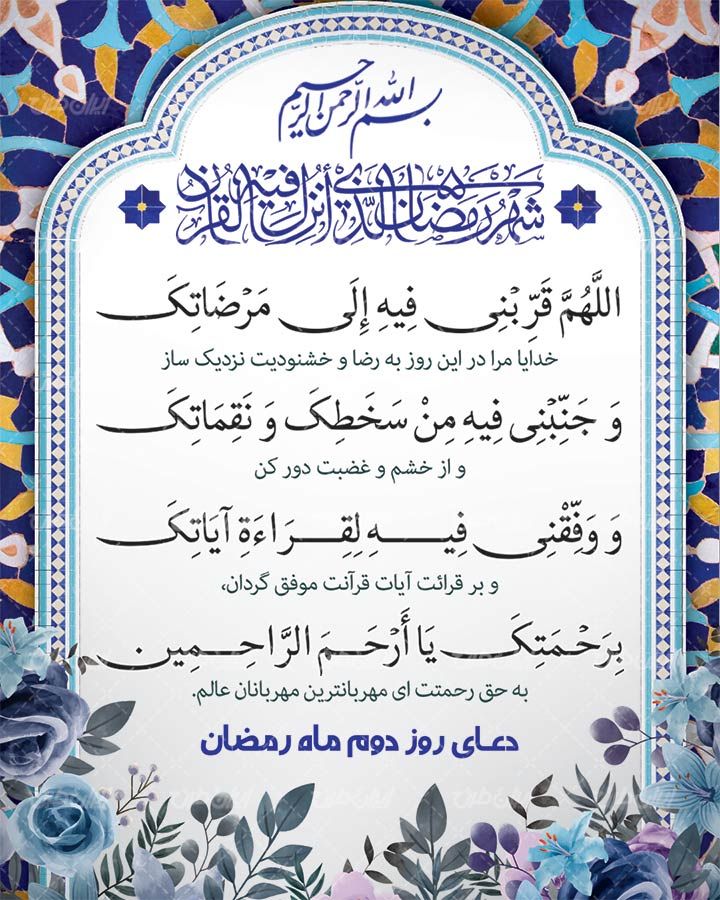 بسم الله الرحمن الرحیم
شهر رمضان الذی أنزل فیه القرآن
اللَّهُمَّ قَرِّبْنِی فِیهِ إِلَی مَرْضَاتِکَ
خدایا مرا در این روز به رضا و خشنودیت نزدیک ساز
وَ جَنِّبْنِی فِیهِ مِنْ سَخَطِکَ وَ نَقِمَاتِکَ
و از خشم و غضبت دور کن
وَ وَفِّقْنِی فِیهِ لِقِرَاءَةِ آیَاتِکَ
و بر قرائت آیات قرآنت موفق گردان،
بِرَحْمَتِکَ یَا أَرْحَمَ الرَّاحِمِینَ
به حق رحمتت ای مهربانترین مهربانان عالم.
دعای روز دوم ماه رمضان